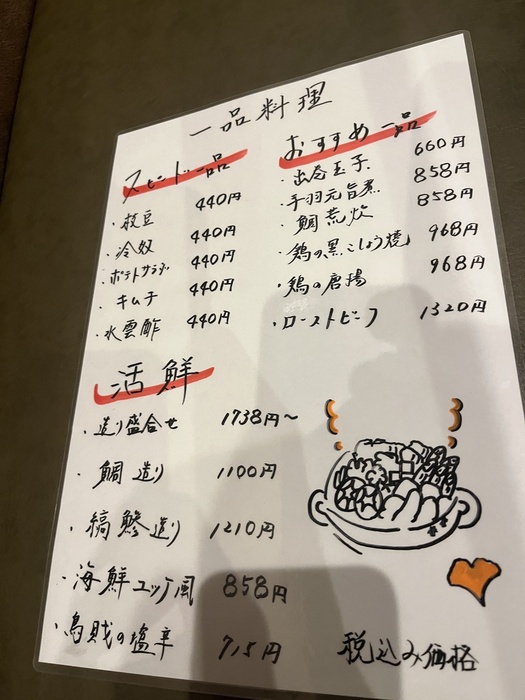 一品料理
スピード一品
・枝豆 440円
・冷奴 440円
・ポテトサラダ 440円
・キムチ 440円
・水雲酢 440円
おすすめ一品
・出巻玉子 660円
・手羽元旨煮 858円
・鯛荒炊 858円
・鶏の黒こしょう焼 968円
・鶏の唐揚 968円
・ローストビーフ 1320円
活鮮
・造り盛合せ 1738円～
・鯛造り 1100円
・縞鯵造り 1210円
・海鮮ユッケ風 858円
・烏賊の塩辛 715円
税込み価格